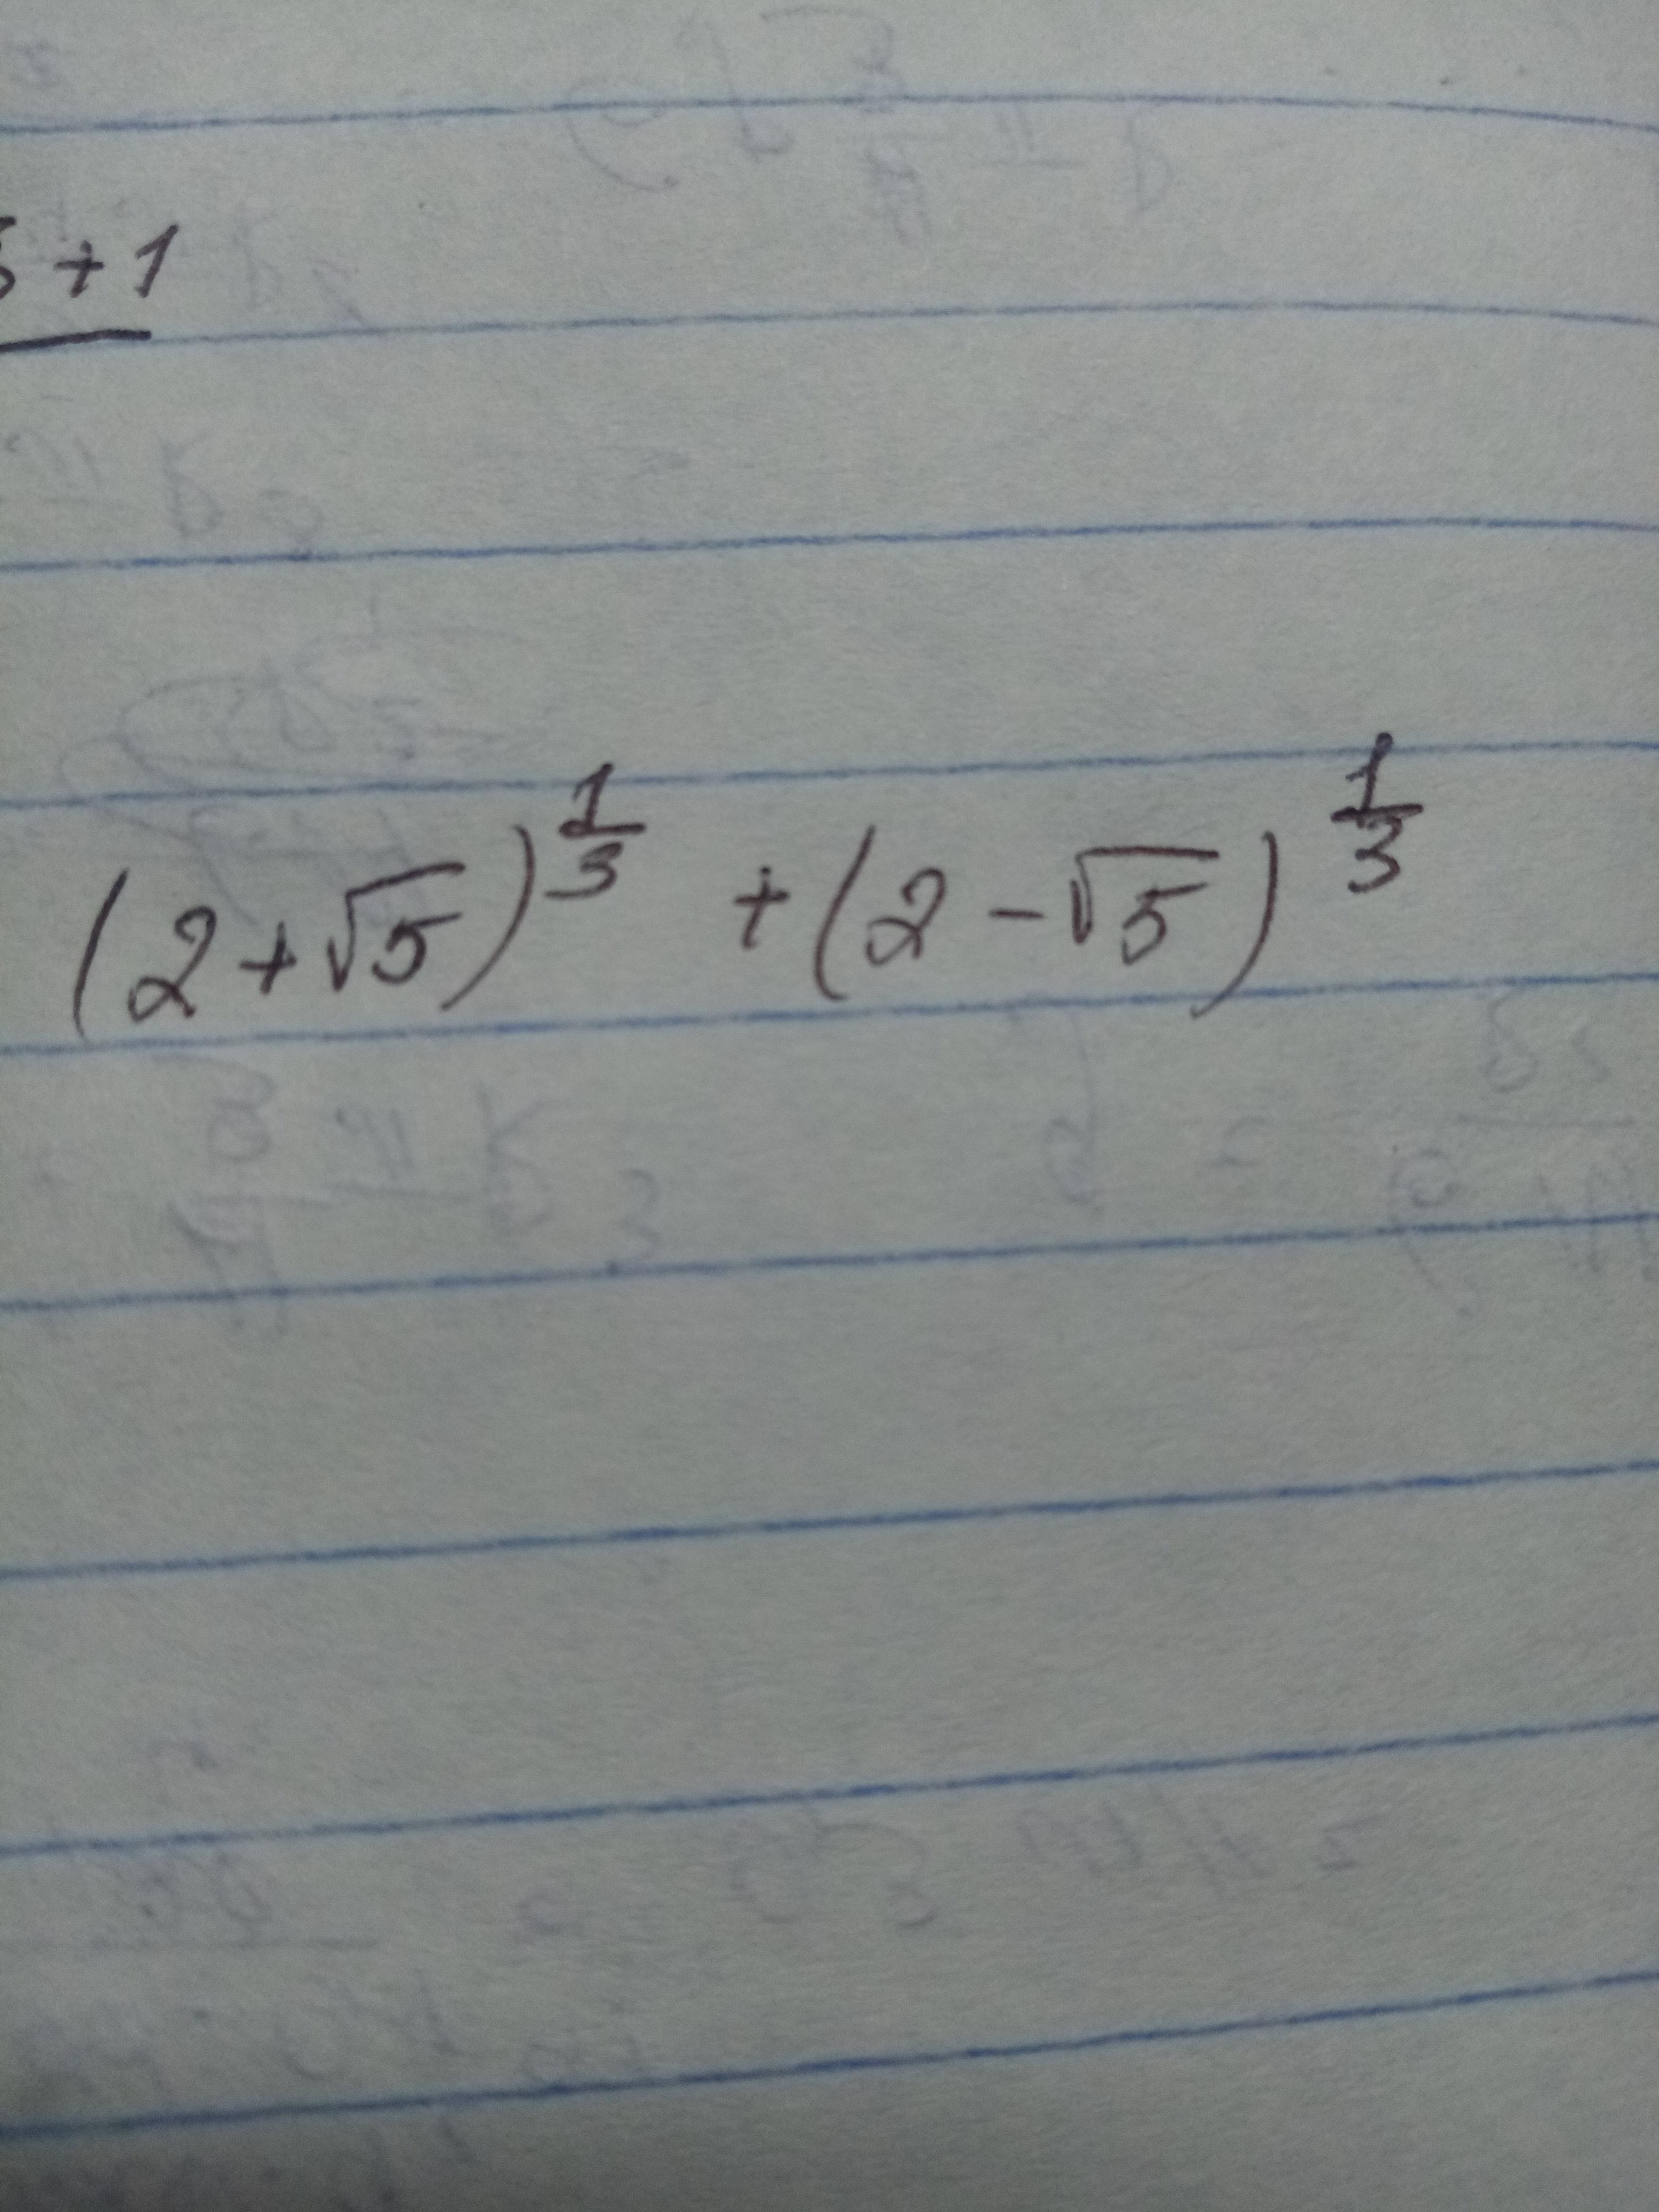 + 1
(2+√5)^(1/3) + (2-√5)^(1/3)